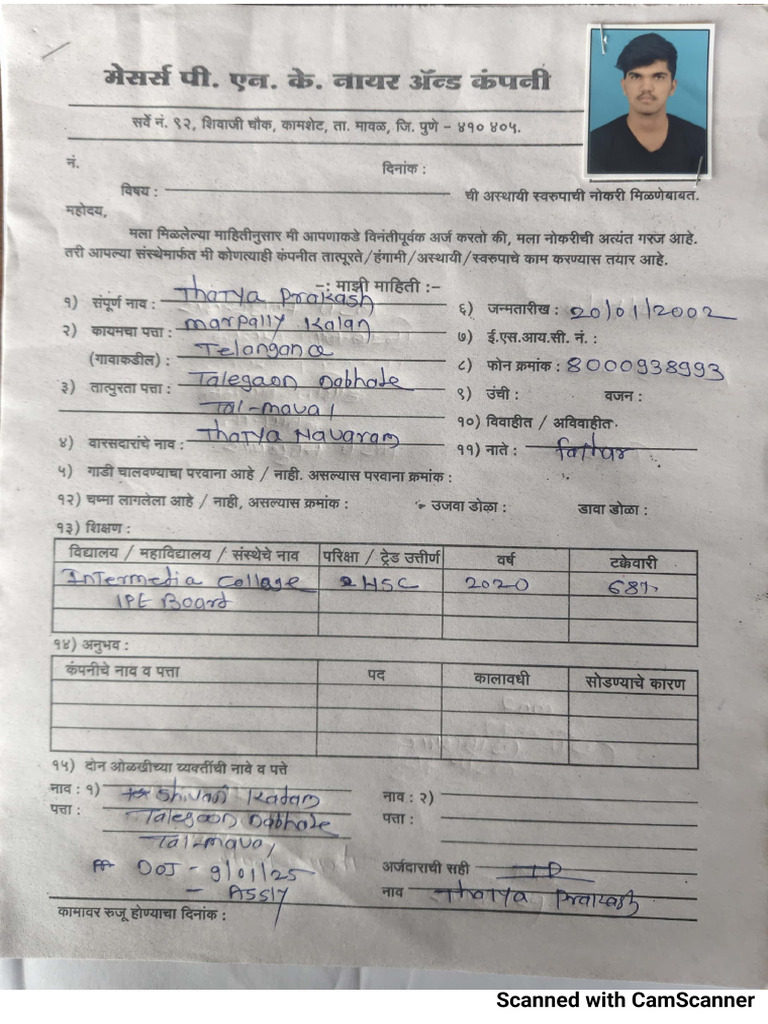 मेसर्स पी. एन. के. नायर ॲन्ड कंपनी
सर्वे नं. ९२, शिवाजी चौक, कामशेट, ता. मावळ, जि. पुणे - ४१० ४०५.
नं. दिनांक :
विषय : ची अस्थायी स्वरुपाची नोकरी मिळणेबाबत.
महोदय,
मला मिळालेल्या माहितीनुसार मी आपणाकडे विनंतीपूर्वक अर्ज करतो की, मला नोकरीची अत्यंत गरज आहे.
तरी आपल्या संस्थेमार्फत मी कोणत्याही कंपनीत तात्पूरते/हंगामी/अस्थायी/स्वरुपाचे काम करण्यास तयार आहे.
-: माझी माहिती :-
१) संपूर्ण नाव : Thatya Prakash
२) कायमचा पत्ता : marpally Kalan
(गावाकडील) : Telangana
३) तात्पुरता पत्ता : Talegaon Dabhade
Tal-maval
४) वारसदारांचे नाव : Thatya Navaram
६) जन्मतारीख : 20/01/2002
७) ई.एस.आय.सी. नं. :
८) फोन क्रमांक : 8000938993
९) उंची : वजन :
१०) विवाहीत / अविवाहीत.
११) नाते : father
५) गाडी चालवण्याचा परवाना आहे / नाही. असल्यास परवाना क्रमांक :
१२) चष्मा लागलेला आहे / नाही, असल्यास क्रमांक : उजवा डोळा : डावा डोळा :
१३) शिक्षण :
विद्यालय / महाविद्यालय / संस्थेचे नाव परिक्षा / ट्रेड उत्तीर्ण वर्ष टक्केवारी
Intermedia Collage HSC 2020 68%
IPE Board
१४) अनुभव :
कंपनीचे नाव व पत्ता पद कालावधी सोडण्याचे कारण
१५) दोन ओळखीच्या व्यक्तींची नावे व पत्ते
नाव : १) Shivani Kadam
पत्ता : Talegaon Dabhade
Tal-maval
नाव : २)
पत्ता :
DOJ - 9/01/25
अर्जदाराची सही TP
नाव Thatya Prakash
कामावर रुजू होण्याचा दिनांक :
Scanned with CamScanner